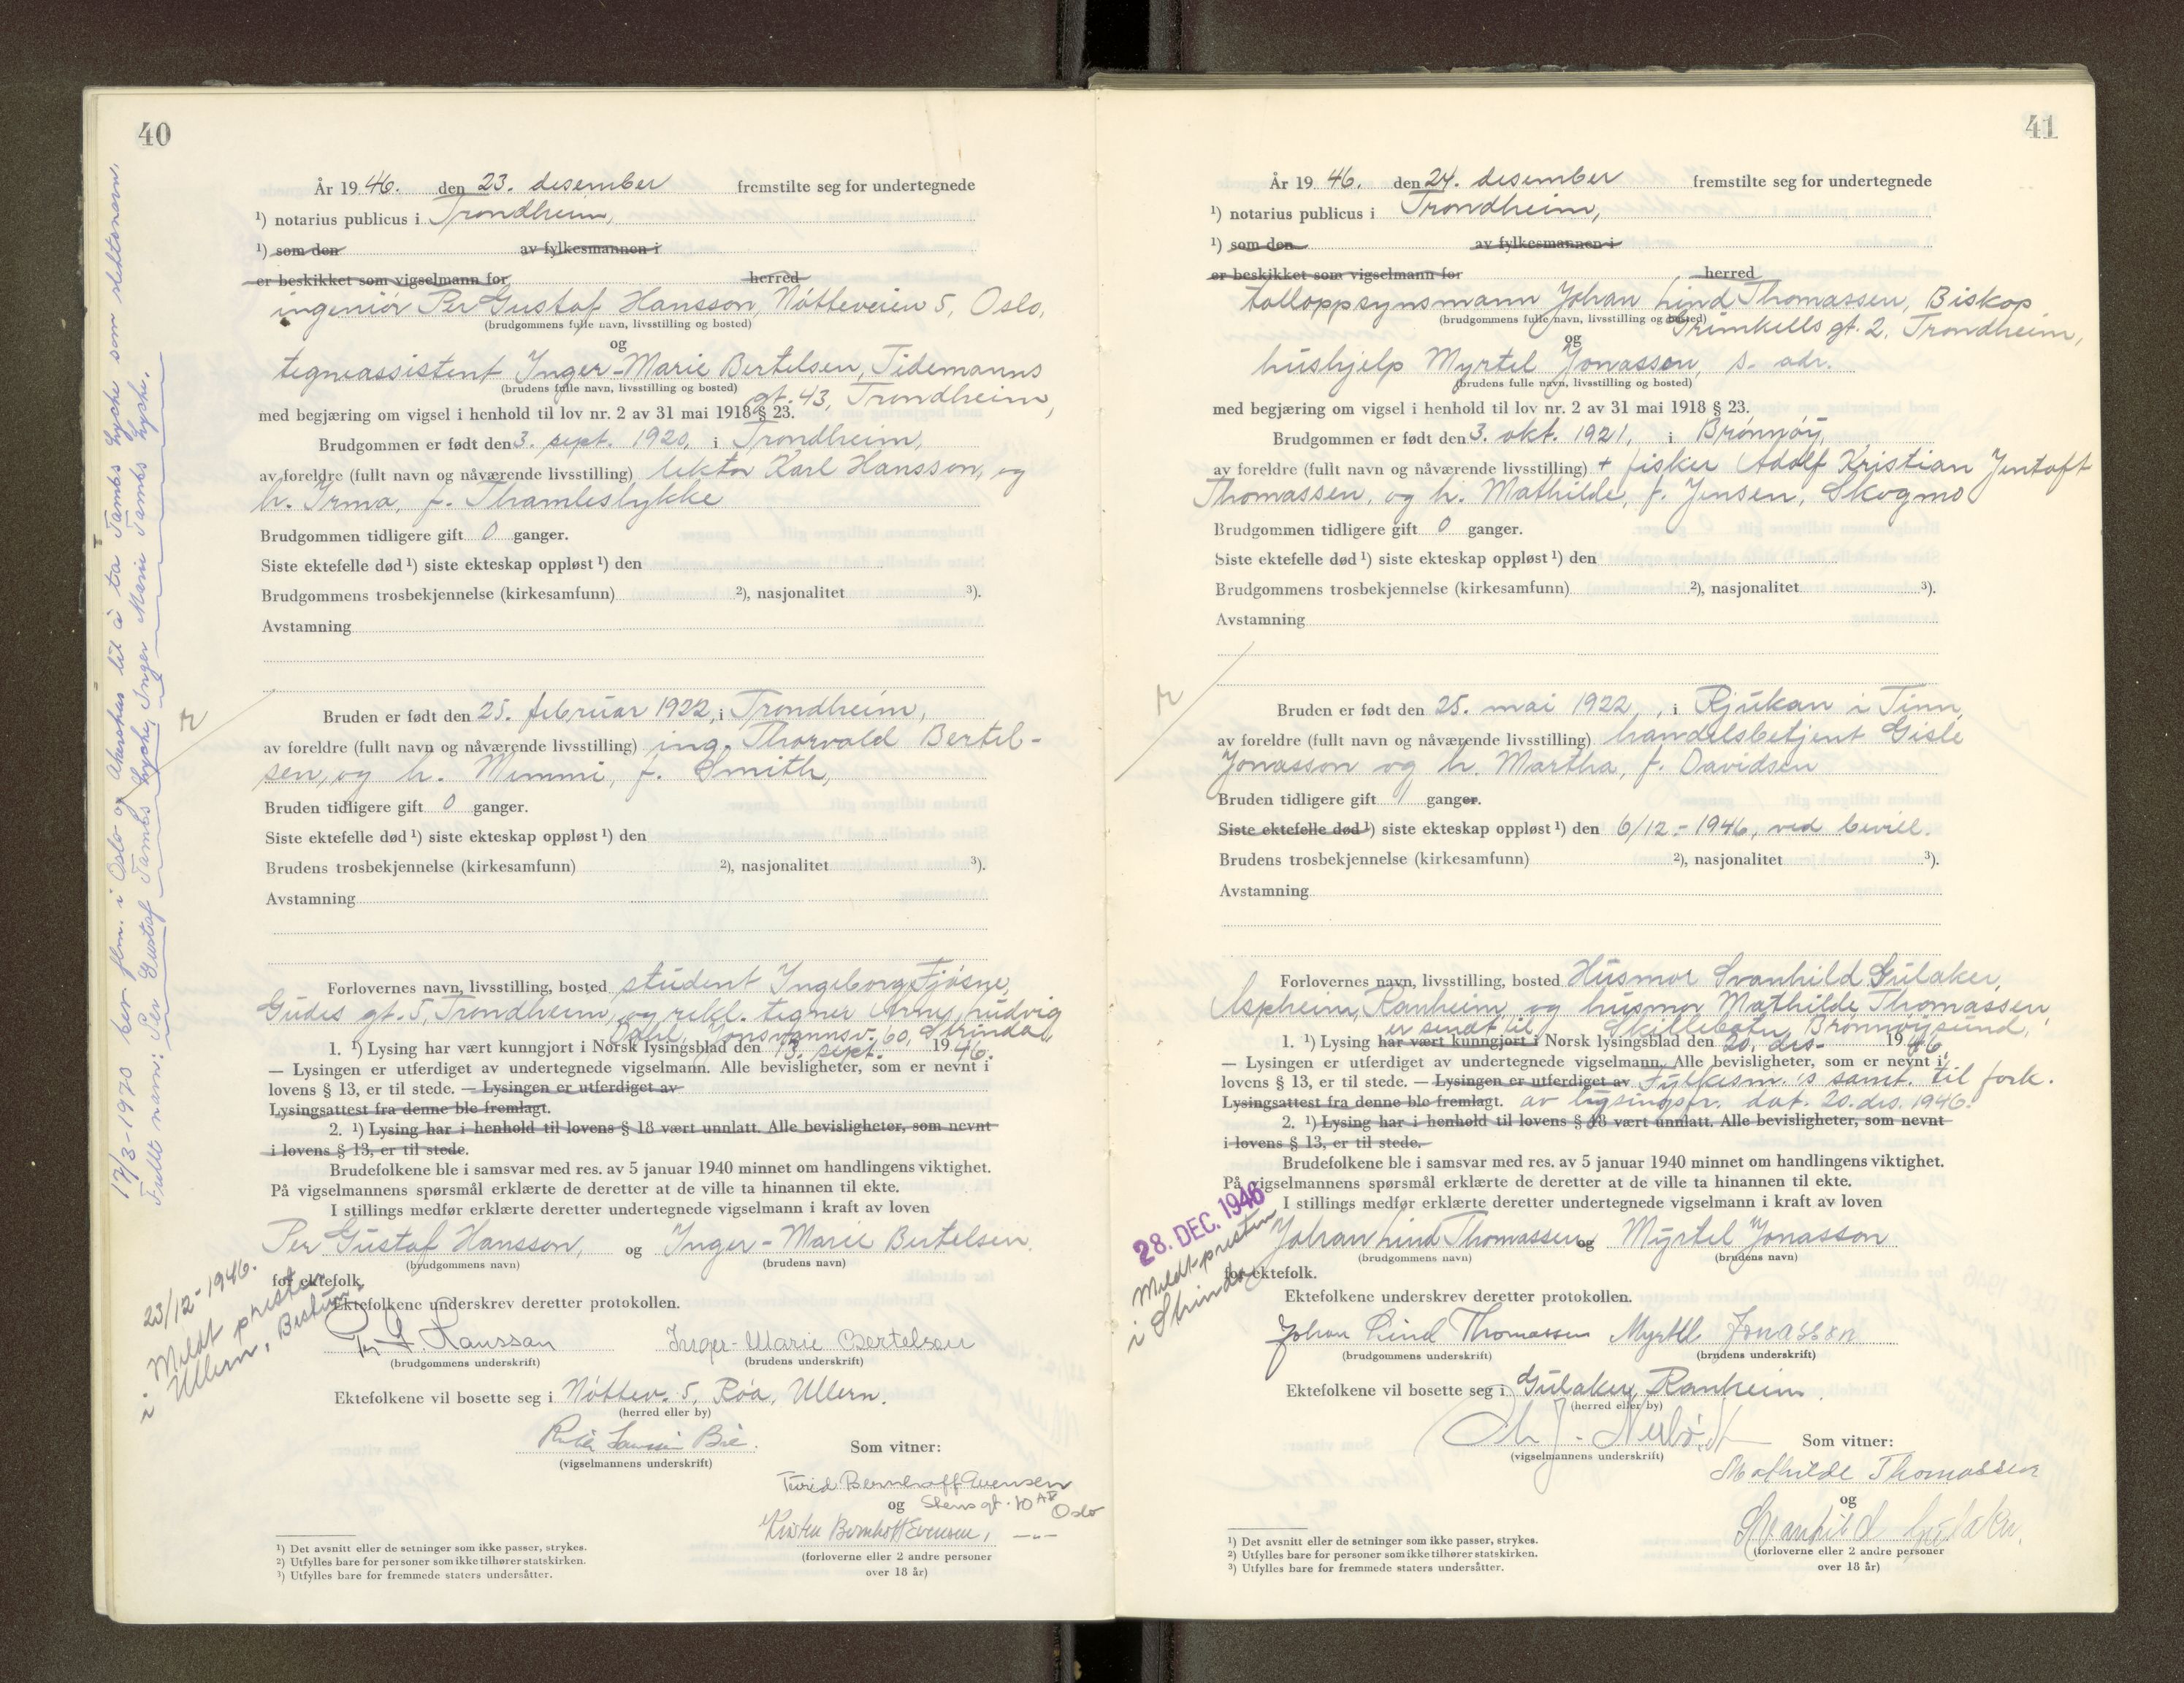 40
År 1946. den 23. desember fremstilte seg for undertegnede
¹) notarius publicus i Trondheim,
¹) som den av fylkesmannen i
er beskikket som vigselmann for herred
ingeniør Per Gustaf Hansson, Nøtteveien 5, Oslo,
(brudgommens fulle navn, livsstilling og bosted)
og
tegneassistent Inger-Marie Bertelsen, Tidemanns
(brudens fulle navn, livsstilling og bosted)
gt. 43, Trondheim,
med begjæring om vigsel i henhold til lov nr. 2 av 31 mai 1918 § 23.
Brudgommen er født den 3. sept. 1920, i Trondheim,
av foreldre (fullt navn og nåværende livsstilling) lektor Karl Hansson, og
h. Irma, f. Thamleslykke
Brudgommen tidligere gift 0 ganger.
Siste ektefelle død ¹) siste ekteskap oppløst ¹) den
Brudgommens trosbekjennelse (kirkesamfunn) ²), nasjonalitet ³).
Avstamning
Bruden er født den 25. februar 1922, i Trondheim,
av foreldre (fullt navn og nåværende livsstilling) ing. Thorvald Bertel-
sen, og h. Mimmi, f. Smith,
Bruden tidligere gift 0 ganger.
Siste ektefelle død ¹) siste ekteskap oppløst ¹) den
Brudens trosbekjennelse (kirkesamfunn) ²), nasjonalitet ³).
Avstamning
Forlovernes navn, livsstilling, bosted student Ingeborg Fjøsne,
Gudes gt. 5, Trondheim, og rekl. tegner Arny Ludvig
Dahl, Jonsvannsv. 60, Strinda,
1. ¹) Lysing har vært kunngjort i Norsk lysingsblad den 13. sept. 1946.
— Lysingen er utferdiget av undertegnede vigselmann. Alle bevisligheter, som er nevnt i
lovens § 13, er til stede. — Lysingen er utferdiget av
Lysingsattest fra denne ble fremlagt.
2. ¹) Lysing har i henhold til lovens § 18 vært unnlatt. Alle bevisligheter, som nevnt
i lovens § 13, er til stede.
Brudefolkene ble i samsvar med res. av 5 januar 1940 minnet om handlingens viktighet.
På vigselmannens spørsmål erklærte de deretter at de ville ta hinannen til ekte.
I stillings medfør erklærte deretter undertegnede vigselmann i kraft av loven
Per Gustaf Hansson, og Inger-Marie Bertelsen.
(brudgommens navn) (brudens navn)
for ektefolk.
Ektefolkene underskrev deretter protokollen.
Per G. Hansson Inger-Marie Bertelsen
(brudgommens underskrift) (brudens underskrift)
Ektefolkene vil bosette seg i Nøttev. 5, Røa, Ullern.
(herred eller by)
(vigselmannens underskrift)
Som vitner:
Turid Bernhoff Evensen
og Stens gt. 10 Oslo
Kirsten Bernhoff Evensen, —"—
(forloverne eller 2 andre personer
over 18 år)
¹) Det avsnitt eller de setninger som ikke passer, strykes.
²) Utfylles bare for personer som ikke tilhører statskirken.
³) Utfylles bare for fremmede staters undersåtter.
17/3-1970 ber flm. i Oslo og Akershus lit å ta Tambs Lyche som slektsnavn.
Fulle navn: Per Gustaf Tambs Lyche, Inger Marie Tambs Lyche.
23/12-1946.
Meldt presten
i Ullern, Bestum.
41
År 1946. den 24. desember fremstilte seg for undertegnede
¹) notarius publicus i Trondheim,
¹) som den av fylkesmannen i
er beskikket som vigselmann for herred
tolloppsynsmann Johan Lind Thomassen, Biskop
(brudgommens fulle navn, livsstilling og bosted)
Grimkells gt. 2, Trondheim,
og
hushjelp Myrtel Jonasson, s. adr.
(brudens fulle navn, livsstilling og bosted)
med begjæring om vigsel i henhold til lov nr. 2 av 31 mai 1918 § 23.
Brudgommen er født den 3. okt. 1921, i Brønnøy,
av foreldre (fullt navn og nåværende livsstilling) + fisker Adolf Kristian Jentoft
Thomassen, og h. Mathilde, f. Jensen, Skogmo
Brudgommen tidligere gift 0 ganger.
Siste ektefelle død ¹) siste ekteskap oppløst ¹) den
Brudgommens trosbekjennelse (kirkesamfunn) ²), nasjonalitet ³).
Avstamning
Bruden er født den 25. mai 1922, i Rjukan i Tinn,
av foreldre (fullt navn og nåværende livsstilling) handelsbetjent Gisle
Jonasson og h. Martha, f. Davidsen
Bruden tidligere gift 1 ganger.
Siste ektefelle død ¹) siste ekteskap oppløst ¹) den 6/12.-1946, ved bevill.
Brudens trosbekjennelse (kirkesamfunn) ²), nasjonalitet ³).
Avstamning
Forlovernes navn, livsstilling, bosted Husmor Svanhild Gulaker,
Aspheim, Ranheim, og husmor Mathilde Thomassen,
er sendt til Skillebotn, Brønnøysund,
1. ¹) Lysing har vært kunngjort i Norsk lysingsblad den 20. des. 1946
— Lysingen er utferdiget av undertegnede vigselmann. Alle bevisligheter, som er nevnt i
lovens § 13, er til stede. — Lysingen er utferdiget av Fylkesm.'s samt. til fork.
Lysingsattest fra denne ble fremlagt. av lysingsfr. dat. 20. des. 1946.
2. ¹) Lysing har i henhold til lovens § 18 vært unnlatt. Alle bevisligheter, som nevnt
i lovens § 13, er til stede.
Brudefolkene ble i samsvar med res. av 5 januar 1940 minnet om handlingens viktighet.
På vigselmannens spørsmål erklærte de deretter at de ville ta hinannen til ekte.
I stillings medfør erklærte deretter undertegnede vigselmann i kraft av loven
28. DEC. 1946
Meldt presten
i Strinda
Johan Lind Thomassen og Myrtel Jonasson
(brudgommens navn) (brudens navn)
for ektefolk.
Ektefolkene underskrev deretter protokollen.
Johan Lind Thomassen Myrtel Jonasson
(brudgommens underskrift) (brudens underskrift)
Ektefolkene vil bosette seg i Gulaker, Ranheim.
(herred eller by)
(vigselmannens underskrift)
Som vitner:
Mathilde Thomassen
og
Svanhild Gulaker.
(forloverne eller 2 andre personer
over 18 år)
¹) Det avsnitt eller de setninger som ikke passer, strykes.
²) Utfylles bare for personer som ikke tilhører statskirken.
³) Utfylles bare for fremmede staters undersåtter.